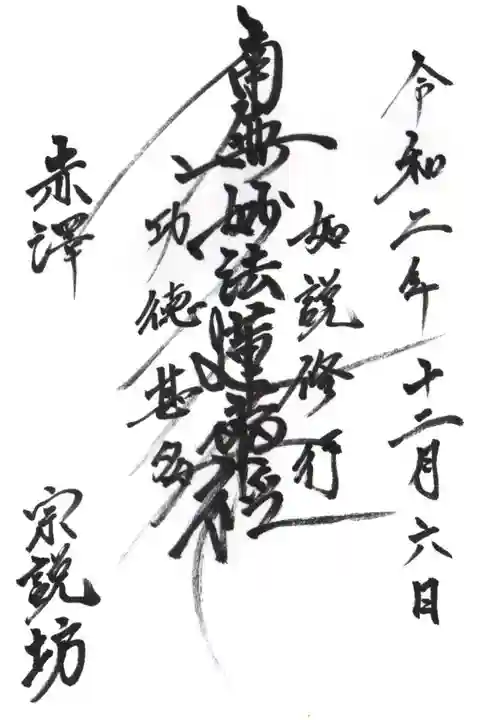 令和二年十二月六日
如説修行
南無妙法蓮華経
功徳甚多
赤澤
宗説坊